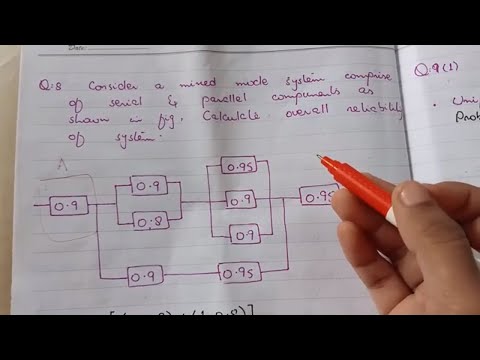 Date:
Q.8 Consider a mixed mode system comprise
of serial & parallel components as
shown in fig. Calculate overall reliability
of system.
Q.9(1)
• Uni
Prob
A
0.9
0.9
0.8
0.95
0.9
0.9
0.95
0.9
0.95